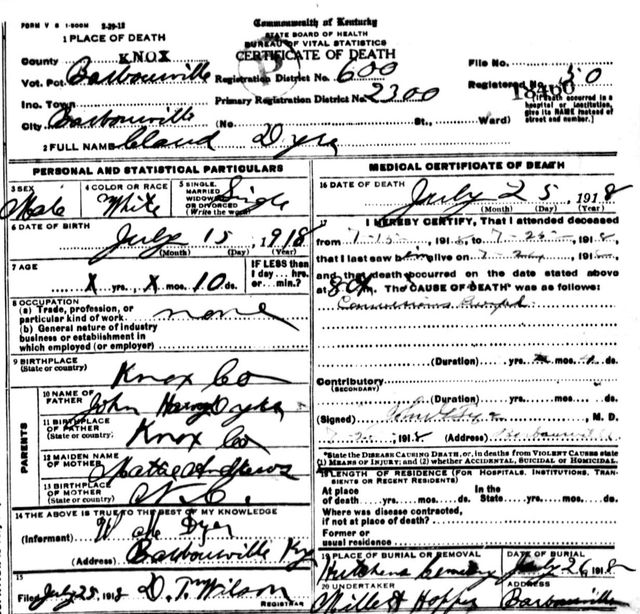 FORM V S 1-500M 2-29-12
Commonwealth of Kentucky
STATE BOARD OF HEALTH
BUREAU OF VITAL STATISTICS
CERTIFICATE OF DEATH
1 PLACE OF DEATH
County KNOX
Vot. Pct. Barbourville Registration District No. 600
File No.
Registered No. 50
18460
Inc. Town
Primary Registration District No. 2300
City Barbourville (No. St., Ward)
[If death occurred in a hospital or institution, give its NAME instead of street and number.]
2 FULL NAME Claud Dyer
PERSONAL AND STATISTICAL PARTICULARS
3 SEX Male
4 COLOR OR RACE White
5 SINGLE, MARRIED, WIDOWED OR DIVORCED (Write the word) Single
6 DATE OF BIRTH
July 15, 1918
(Month) (Day) (Year)
7 AGE
x yrs. x mos. 10 ds.
IF LESS than 1 day... hrs. or... min.?
8 OCCUPATION
(a) Trade, profession, or particular kind of work none
(b) General nature of industry business or establishment in which employed (or employer)
9 BIRTHPLACE (State or country) Knox Co
PARENTS
10 NAME OF FATHER John Dyer
11 BIRTHPLACE OF FATHER (State or country) Knox Co
12 MAIDEN NAME OF MOTHER Mattie Andrews
13 BIRTHPLACE OF MOTHER (State or country) N. C.
14 THE ABOVE IS TRUE TO THE BEST OF MY KNOWLEDGE
(Informant) W M Dyer
(Address) Barbourville Ky
15
Filed July 25, 1918 D. T. Wilson
REGISTRAR
MEDICAL CERTIFICATE OF DEATH
16 DATE OF DEATH
July 25, 1918
(Month) (Day) (Year)
17 I HEREBY CERTIFY, That I attended deceased
from 7-15-, 1918, to 7-25-, 1918,
that I last saw him alive on 7-, 191
and that death occurred on the date stated above
at m. The CAUSE OF DEATH* was as follows:
(Duration) yrs. mos. ds.
Contributory
(SECONDARY)
(Duration) yrs. mos. ds.
(Signed) , M. D.
, 1918 (Address) Barbourville
*State the DISEASE CAUSING DEATH, or, in deaths from VIOLENT CAUSES state (1) MEANS OF INJURY; and (2) whether ACCIDENTAL, SUICIDAL or HOMICIDAL.
18 LENGTH OF RESIDENCE (FOR HOSPITALS, INSTITUTIONS, TRANSIENTS OR RECENT RESIDENTS)
At place of death yrs. mos. ds. In the State yrs. mos. ds.
Where was disease contracted, if not at place of death?
Former or usual residence
19 PLACE OF BURIAL OR REMOVAL Cemetery
DATE OF BURIAL July 26, 1918
20 UNDERTAKER Miller & Hopper
ADDRESS Barbourville